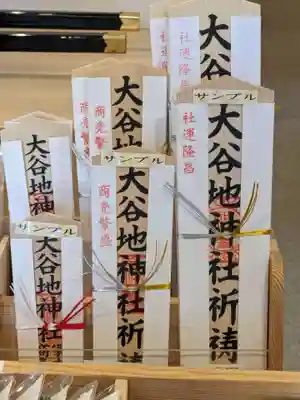 大谷地
社運隆昌
大谷地
商売繁
サンプル
大谷地神社祈祷
社運隆昌
大谷地神
サンプル
大谷地神社祈祷
商売繁盛
サンプル
大谷地神社